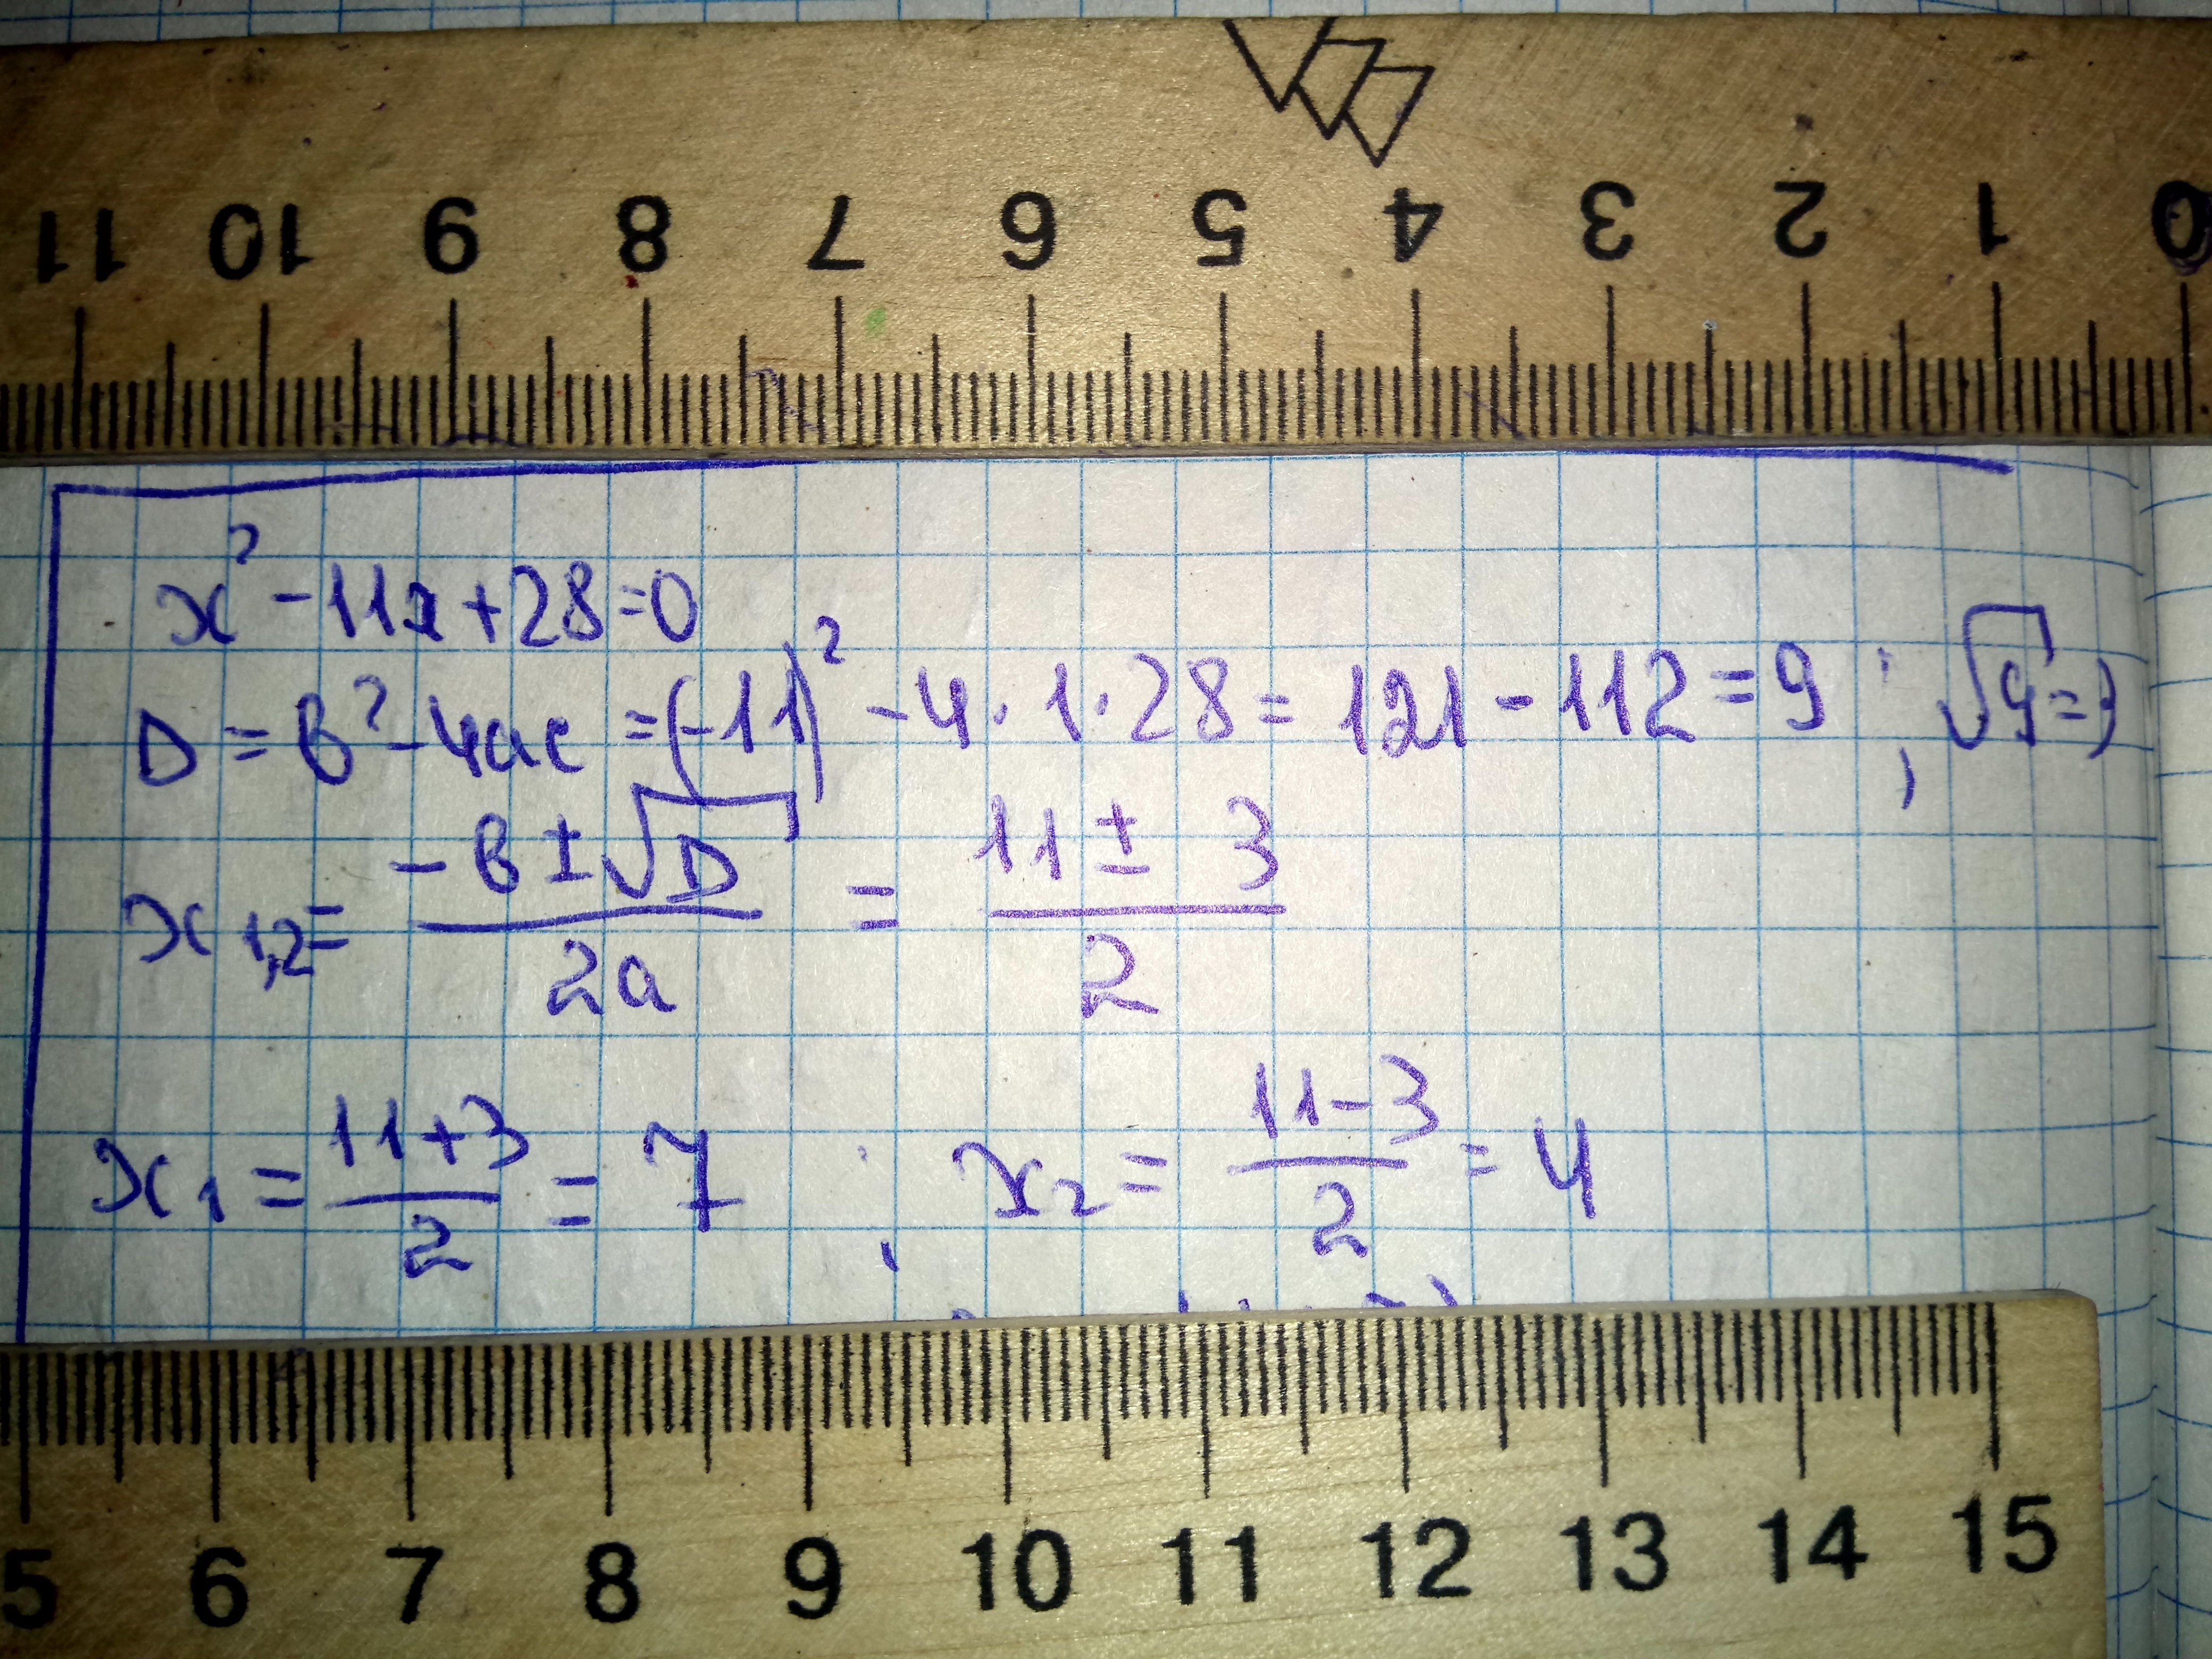 11 10 9 8 7 6 5 4 3 2 1 0
x² - 11x + 28 = 0
D = b² - 4ac = (-11)² - 4 · 1 · 28 = 121 - 112 = 9 ; √9 = 3
x₁,₂ = (-b ± √D) / 2a = (11 ± 3) / 2
x₁ = (11 + 3) / 2 = 7 ; x₂ = (11 - 3) / 2 = 4
5 6 7 8 9 10 11 12 13 14 15